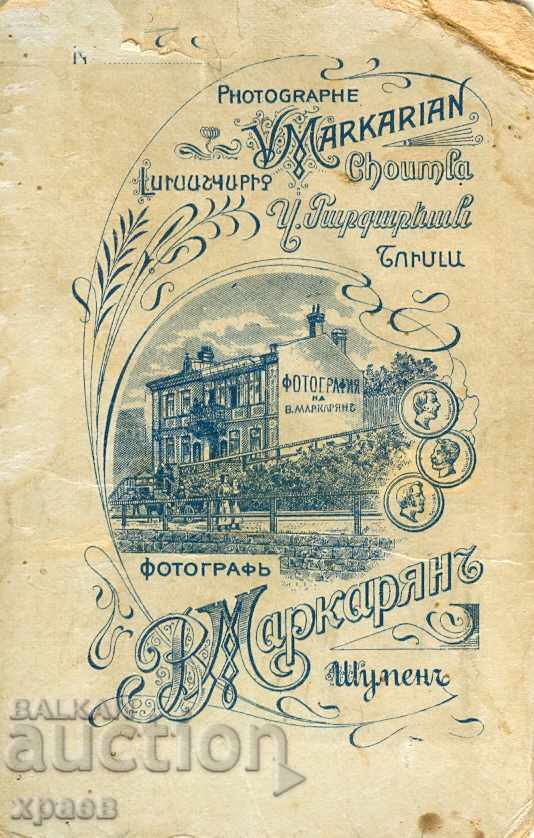 №
PHOTOGRAPHE
V MARKARIAN
Choumla
ԼՈՒՍԱՆԿԱՐԻՉ
Վ. Մարգարեան
ՇՈՒՄԼԱ
ФОТОГРАФИЯ
НА
В. МАРКАРЯНЪ
ФОТОГРАФЬ
В Маркарянъ
Шуменъ
BALKAN
auction
храев